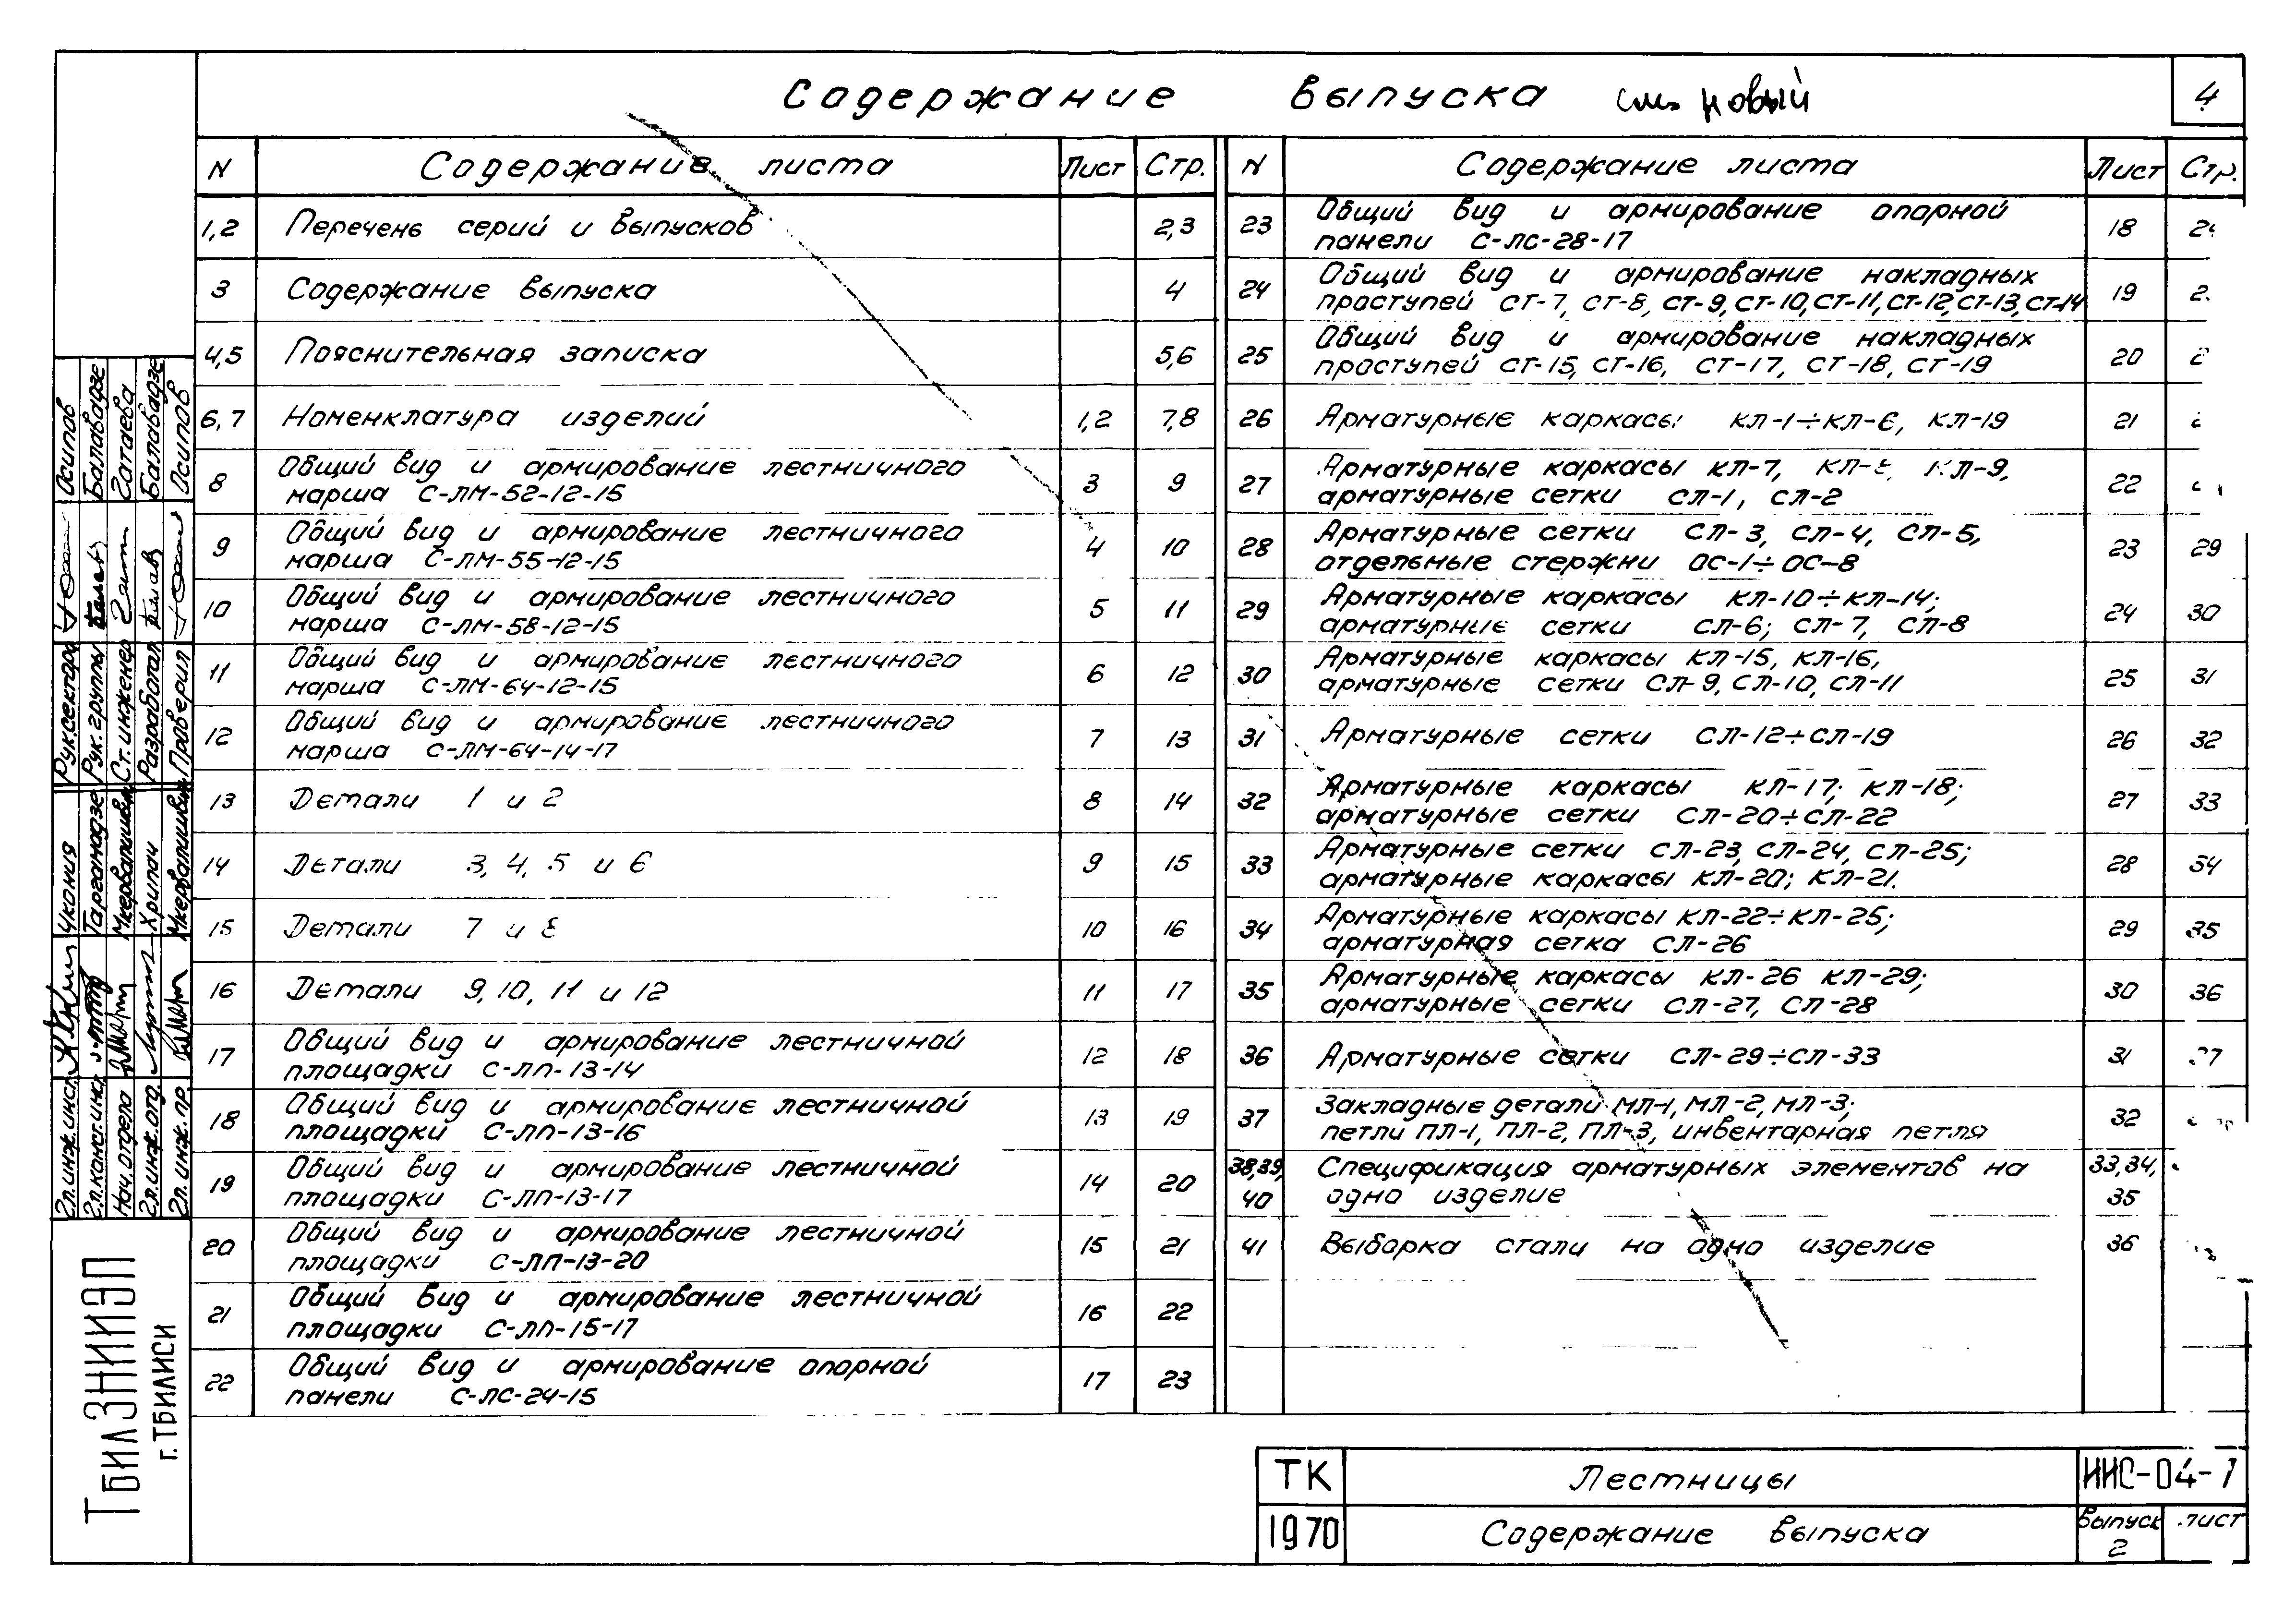 Содержание выпуска см. новый
4
N Содержание листа Лист Стр.
1,2 Перечень серий и выпусков 2,3
3 Содержание выпуска 4
4,5 Пояснительная записка 5,6
6,7 Номенклатура изделий 1,2 7,8
8 Общий вид и армирование лестничного
марша С-ЛМ-52-12-15 3 9
9 Общий вид и армирование лестничного
марша С-ЛМ-55-12-15 4 10
10 Общий вид и армирование лестничного
марша С-ЛМ-58-12-15 5 11
11 Общий вид и армирование лестничного
марша С-ЛМ-64-12-15 6 12
12 Общий вид и армирование лестничного
марша С-ЛМ-64-14-17 7 13
13 Детали 1 и 2 8 14
14 Детали 3, 4, 5 и 6 9 15
15 Детали 7 и 8 10 16
16 Детали 9, 10, 11 и 12 11 17
17 Общий вид и армирование лестничной
площадки С-ЛП-13-14 12 18
18 Общий вид и армирование лестничной
площадки С-ЛП-13-16 13 19
19 Общий вид и армирование лестничной
площадки С-ЛП-13-17 14 20
20 Общий вид и армирование лестничной
площадки С-ЛП-13-20 15 21
21 Общий вид и армирование лестничной
площадки С-ЛП-15-17 16 22
22 Общий вид и армирование опорной
панели С-ЛС-24-15 17 23
N Содержание листа Лист Стр.
23 Общий вид и армирование опорной
панели С-ЛС-28-17 18
24 Общий вид и армирование накладных
проступей СТ-7, СТ-8, СТ-9, СТ-10, СТ-11, СТ-12, СТ-13, СТ-14 19
25 Общий вид и армирование накладных
проступей СТ-15, СТ-16, СТ-17, СТ-18, СТ-19 20
26 Арматурные каркасы КЛ-1÷КЛ-6, КЛ-19 21
27 Арматурные каркасы КЛ-7, КЛ-8, КЛ-9,
арматурные сетки СЛ-1, СЛ-2 22
28 Арматурные сетки СЛ-3, СЛ-4, СЛ-5,
отдельные стержни ОС-1÷ОС-8 23 29
29 Арматурные каркасы КЛ-10÷КЛ-14;
арматурные сетки СЛ-6; СЛ-7, СЛ-8 24 30
30 Арматурные каркасы КЛ-15, КЛ-16,
арматурные сетки СЛ-9, СЛ-10, СЛ-11 25 31
31 Арматурные сетки СЛ-12÷СЛ-19 26 32
32 Арматурные каркасы КЛ-17; КЛ-18;
арматурные сетки СЛ-20÷СЛ-22 27 33
33 Арматурные сетки СЛ-23, СЛ-24, СЛ-25;
арматурные каркасы КЛ-20; КЛ-21. 28 34
34 Арматурные каркасы КЛ-22÷КЛ-25;
арматурная сетка СЛ-26 29 35
35 Арматурные каркасы КЛ-26 КЛ-29;
арматурные сетки СЛ-27, СЛ-28 30 36
36 Арматурные сетки СЛ-29÷СЛ-33 31 37
37 Закладные детали МЛ-1, МЛ-2, МЛ-3;
петли ПЛ-1, ПЛ-2, ПЛ-3, инвентарная петля 32
38,39, Спецификация арматурных элементов на 33,34,
40 одно изделие 35
41 Выборка стали на одно изделие 36
Рук.сектора Осипов
Рук. группы Балавадзе
Ст. инженер Затаева
Разработал Балавадзе
Проверил Осипов
Гл.инж.инст. Чкония
Гл.конст.инст. Таргамадзе
Нач. отдела Мкервалишвили
Гл.инж.отд. Хрипач
Гл. инж. пр. Мкервалишвили
ТбилЗНИИЭП
г. ТБИЛИСИ
ТК Лестницы ИИС-04-7
1970 Содержание выпуска
Выпуск
2
лист